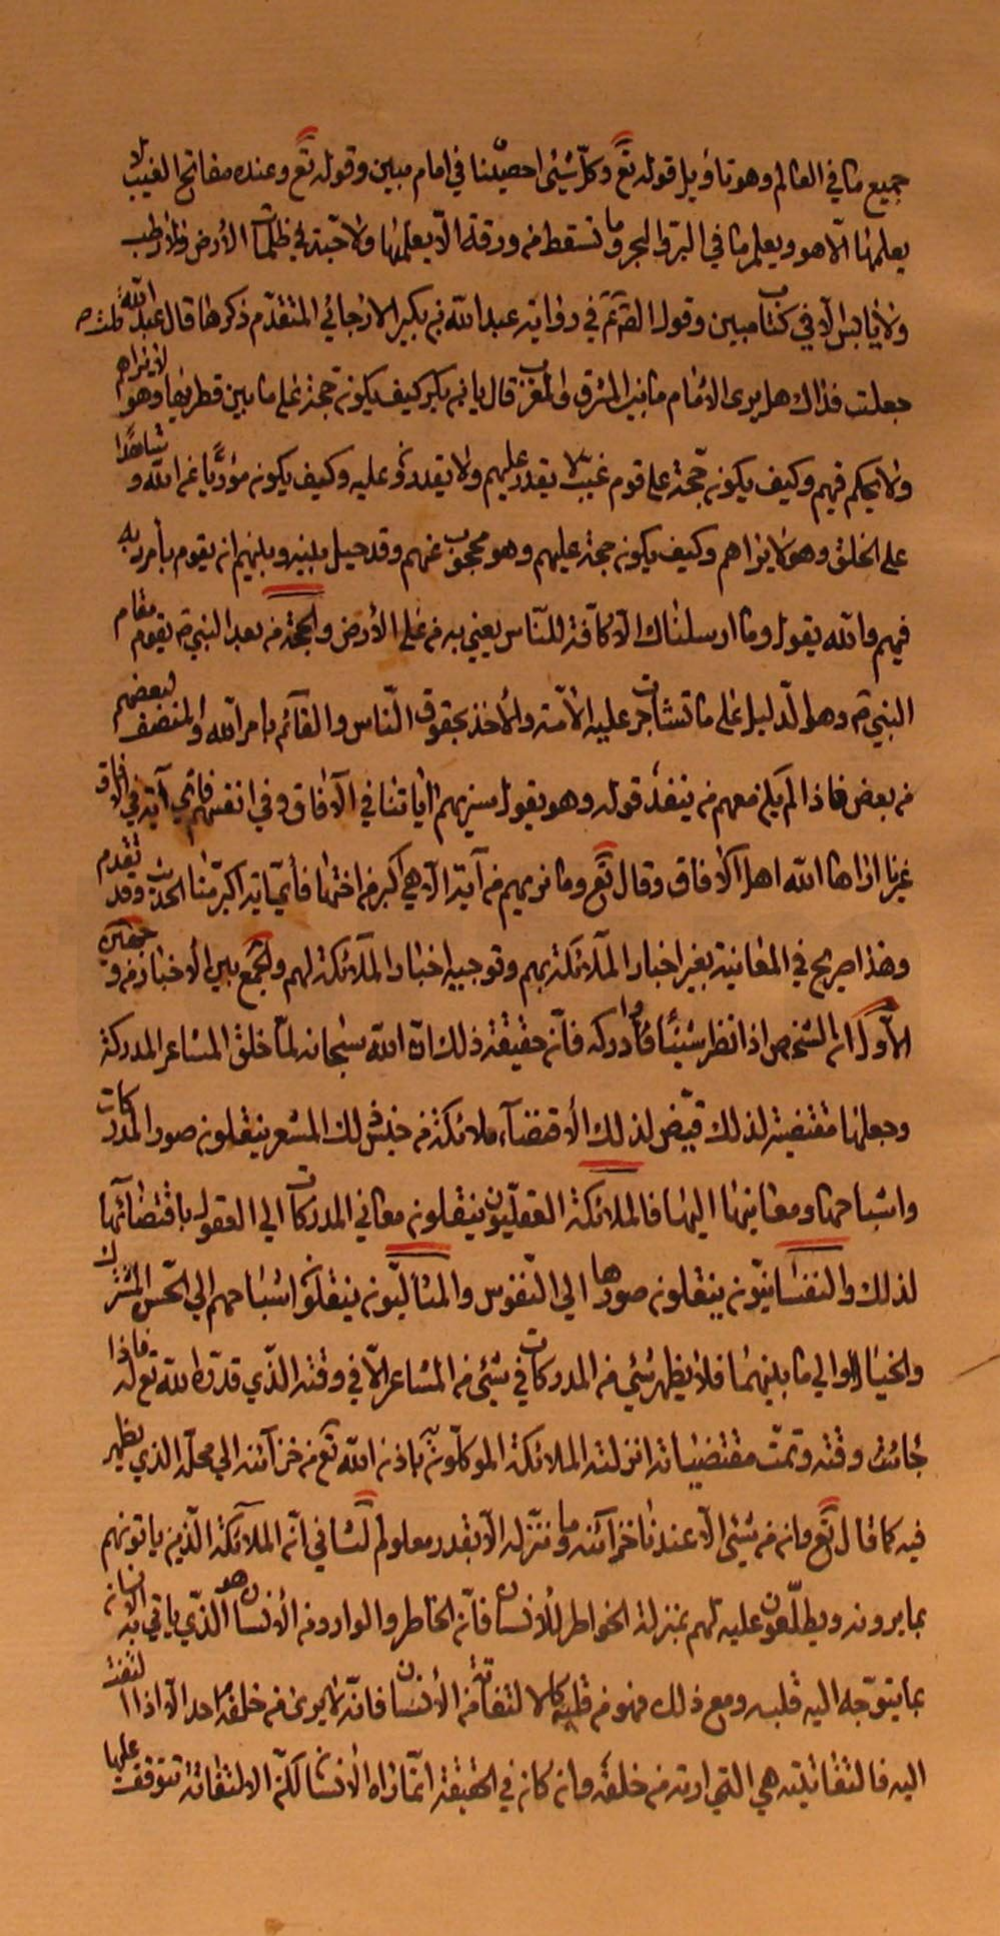 جميع ما في العالم وهو تاويل قوله تع وكلّ شيئ احصيناه في امام مبين وقوله تع وعنده مفاتح الغيب لا
يعلمها الّا هو ويعلم ما في البرّ والبحر وما تسقط من ورقة الّا يعلمها ولا حبّة في ظلمات الأرض ولا رطب
ولا يابس الّا في كتاب مبين وقول الص ع في رواية عبد الله بن بكير الارجائي المتقدّم ذكرها قال عبد الله قلت له
جعلت فداك هل يرى الأمام ما بين المشرق والمغرب قال يا بن بكير كيف يكون حجة على ما بين قطريها وهو لا يراهم
ولا يحكم فيهم وكيف يكون حجّة على قوم غيّب لا يقدر عليهم ولا يقدرون عليه وكيف يكون مؤدّيا عن الله وشاهدًا
على الخلق وهو لا يراهم وكيف يكون حجة عليهم وهو محجوب عنهم وقد حيل بينه وبينهم ان يقوم بأمر ربه
فيهم والله يقول وما ارسلناك الّا كافّة للنّاس يعني به من على الأرض والحجة من بعد النبي ص يقوم مقام
النبي ص وهو الدّليل على ما تشاجرت عليه الأمّة والأخذ بحقوق النّاس والقائم بامر الله والمنصف لبعضهم
من بعض فاذا لم يكن معهم من ينفذ قوله وهو يقول سنريهم اياتنا في الآفاق وفي انفسهم فاي آية في الافاق
غيرنا اراها الله اهل الافاق وقال تع وما نريهم من آية الّا هي اكبر من اختها فأي اية اكبر منّا الحديث وقد تقدم
وهذا صريح في المعاينة بغير اخبار الملائكة بهم وتوجيه اخبار الملائكة لهم والجمع بين الأخبار من وجهين
الأوّل انّ الشخص اذا نظر شيئًا وأدركه فانّ حقيقة ذلك انّ الله سبحانه لمّا خلق المشاعر المدركة
وجعلها مقتضية لذلك قيّض لذلك الأقتضآء ملائكة من جنس ذلك المشعر ينقلون صور المدركات
واشباحها ومعانيها اليها فالملائكة العقليّون ينقلون معاني المدركات الي العقول باقتضائها
لذلك والنفسانيّون ينقلون صورها الي النّفوس والمثاليّون ينقلون اشباحهم الي الحسّ المشترك
والخيال والي ما بينهما فلا يظهر شيئ من المدركات في شيئ من المشاعر الّا في وقته الّذي قدّره الله تع له فاذا
جائت وقته وتمّت مقتضياته انزلته الملائكة الموكّلون به باذن الله تع من خزآئنه الي محلّه الذي يظهر
فيه كما قال تع وان من شيئ الّا عندنا خزآئنه وما ننزّله الّا بقدر معلوم الثاني انّ الملائكة الّذين ياتونهم
بما يرونه ويطلّعون عليه لهم بمنزلة الخواطر للأنسان فانّ الخاطر والوارد من الأنسان هو الّذي ياتي به الانسان
بما يتوّجه اليه قلبه ومع ذلك فهو من قلبه كالالتفاتة من الأنسان فانّه لا يرى من خلفه احدا الّا اذا التفت
اليه فالتفاتيته هي التي ارته من خلفه وان كان في الحقيقة انّما راه الأنسان لكنّ الالتفاتة تتوقف عليها